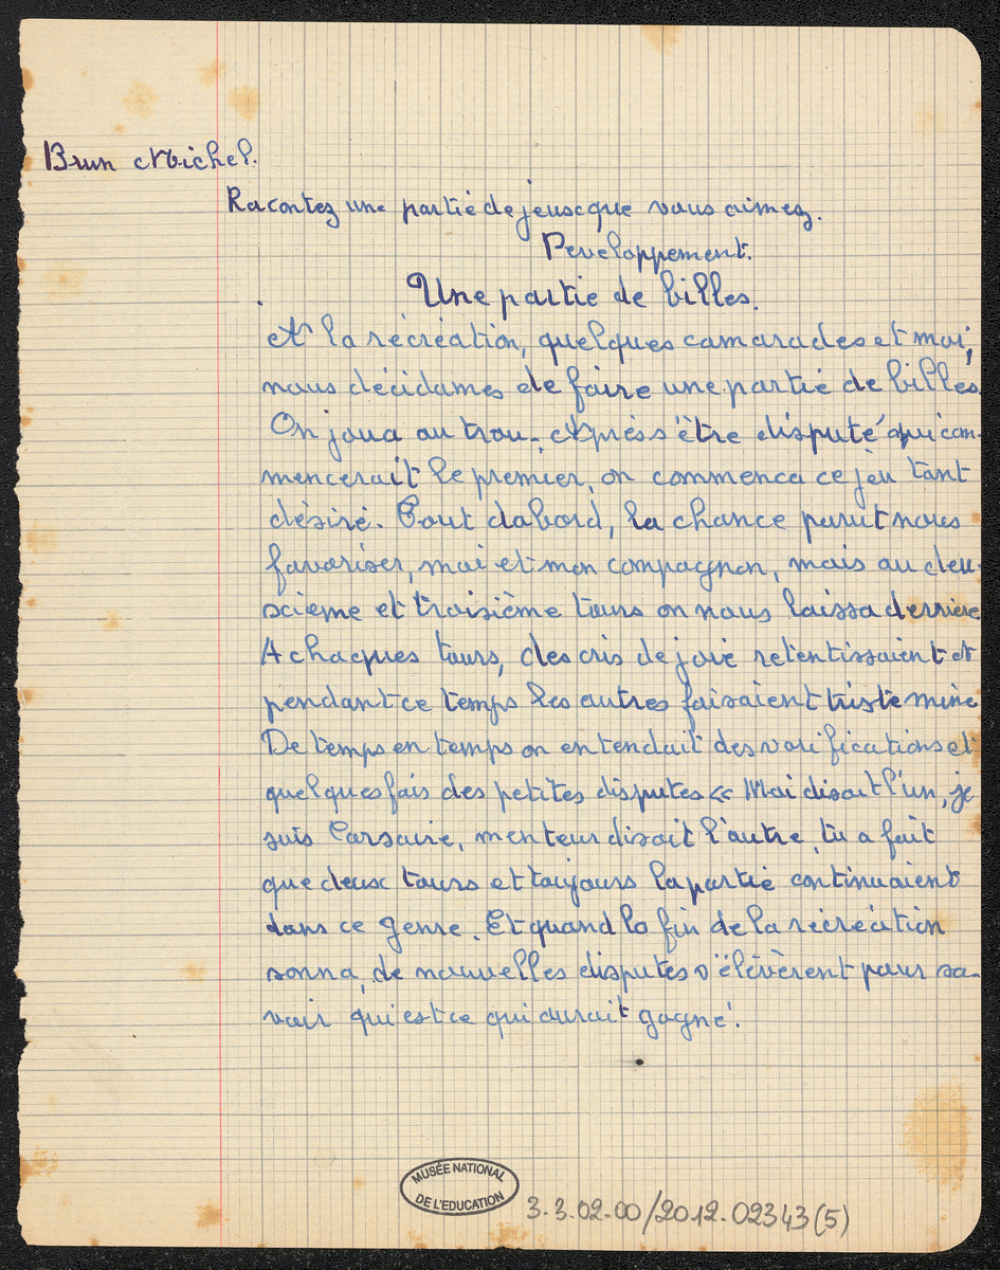 Brun Michel.
Racontez une partie de jeux que vous aimez.
Developpement.
Une partie de billes.
A la récréation, quelques camarades et moi,
nous décidames de faire une partie de billes.
On joua au trou. Après s'être disputé qui com-
mencerait le premier, on commenca ce jeu tant
désiré. Tout dabord, la chance parut nous
favoriser, moi et mon compagnon, mais au deu-
xieme et troisième tours on nous laissa derrière
A chaques tours, des cris de joie retentissaient et
pendant ce temps les autres faisaient triste mine
De temps en temps on entendait des vérifications et
quelques fois des petites disputes « Moi disait l'un, je
suis Corsaire, menteur disait l'autre, tu a fait
que deux tours et toujours la partie continuaient
dans ce genre. Et quand la fin de la récréation
sonna, de nouvelles disputes s'élevèrent pour sa-
voir qui est ce qui aurait gagné.
MUSÉE NATIONAL
DE L'EDUCATION
3.3.02.00/2012.02343(5)